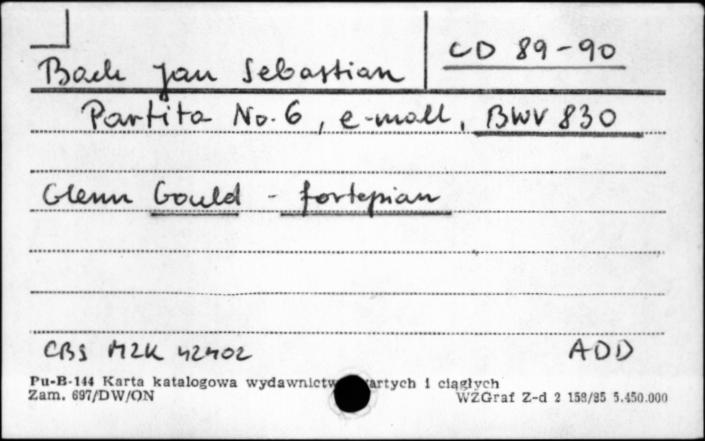 Bach Jan Sebastian CD 89-90
Partita No. 6, e-moll, BWV 830
Glenn Gould - fortepian
CBS M2K 42402 ADD
Pu-B-144 Karta katalogowa wydawnictw artych i ciągłych
Zam. 697/DW/ON WZGraf Z-d 2 158/85 5.450.000